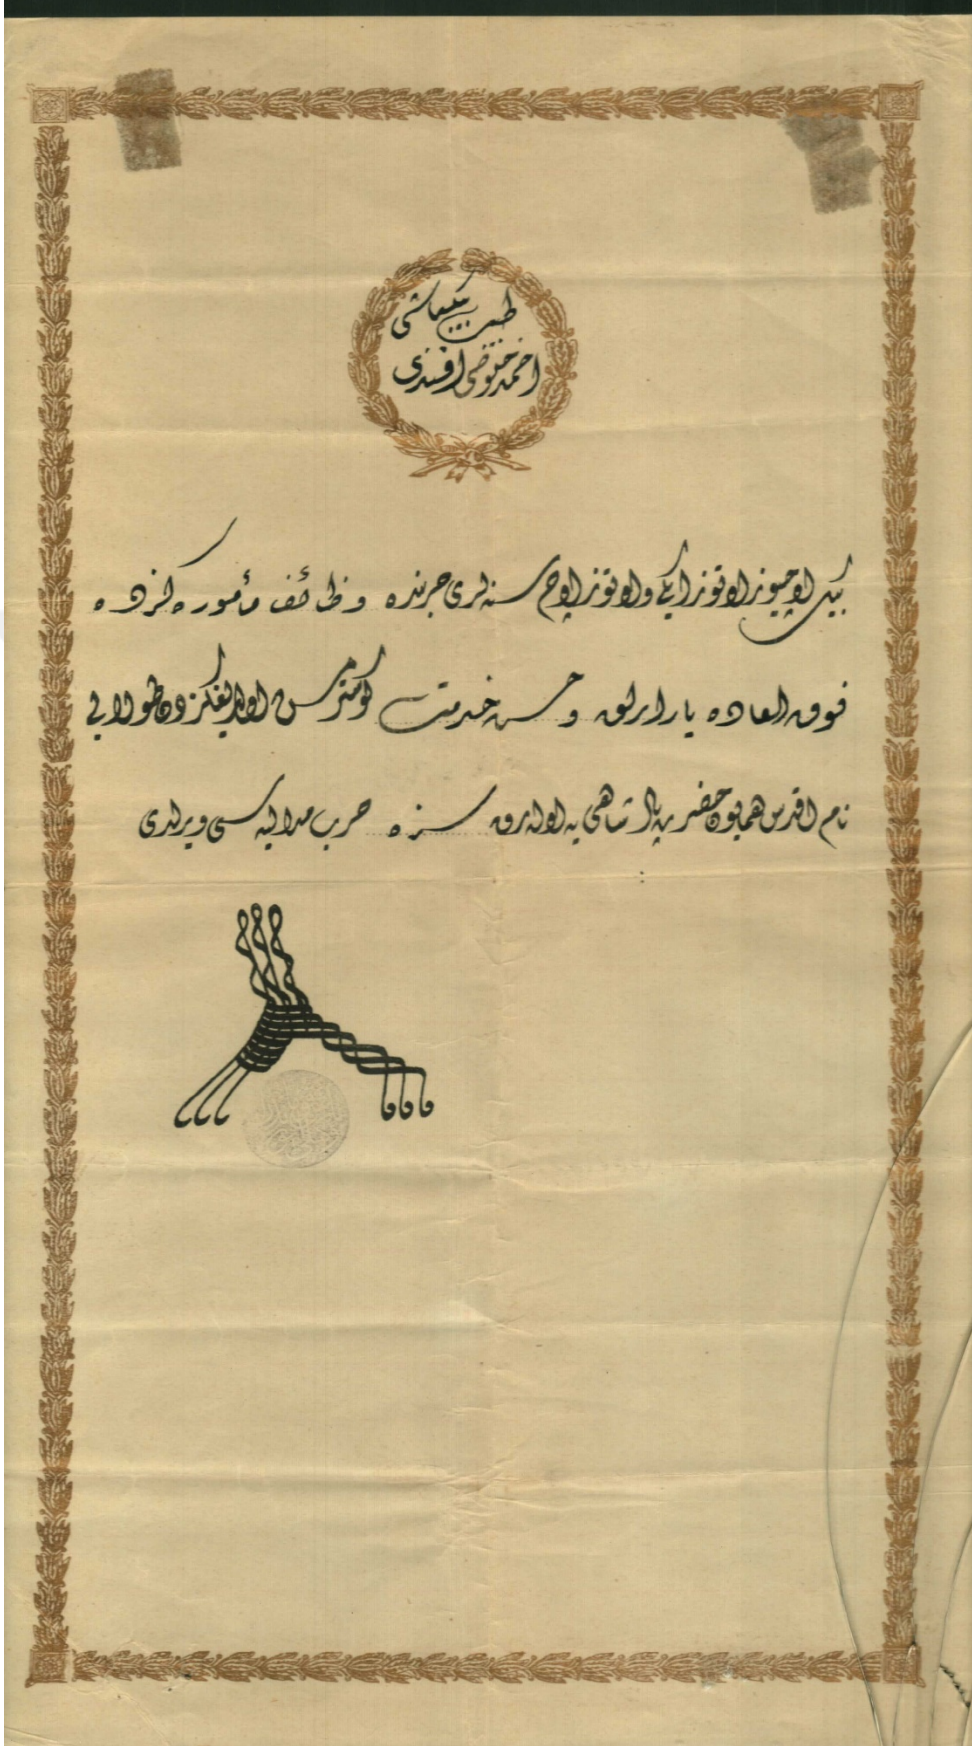 طبيب بيكباشى
احمد افندى
بيك اوچيوز اوتوز ايكى و اوتوز اوچ سنه لرى حربنده وظائف مأموره كزده
فوق العاده يارارلق و حسن خدمت كوسترمش اولديغكزدن طولايى
نام اقدس همايون حضرت پادشاهى يه اوله رق سزه حرب مداليه سى ويرلدى